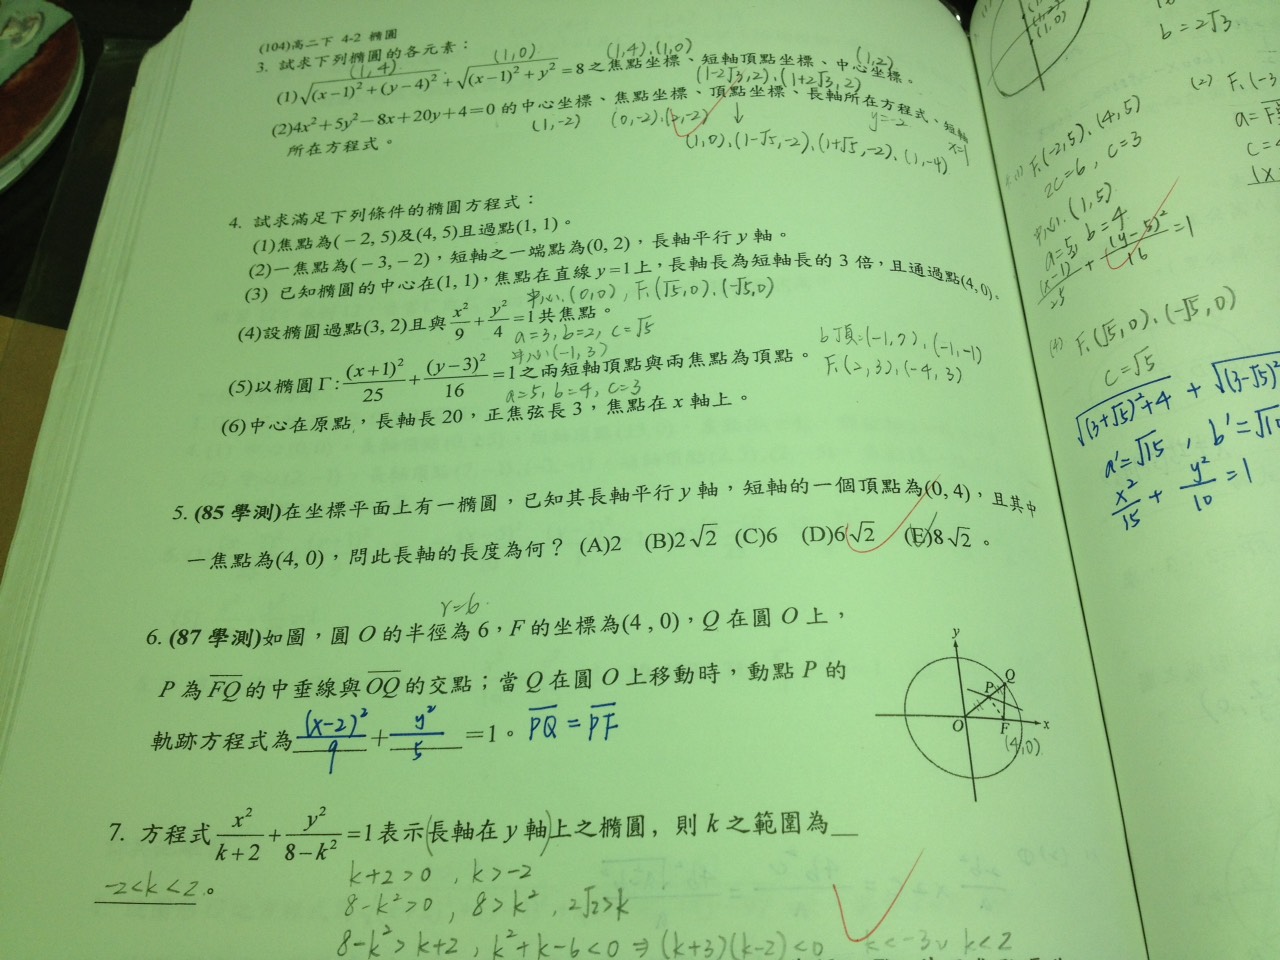 (104)高二下 4-2 橢圓
3. 試求下列橢圓的各元素：
(1,4) (1,0) (1,4).(1,0) (1-2√3,2).(1+2√3,2) (1,2)
(1)√((x−1)²+(y−4)²)+√((x−1)²+y²)=8之焦點坐標、短軸頂點坐標、中心坐標。
(2)4x²+5y²−8x+20y+4=0 的中心坐標、焦點坐標、頂點坐標、長軸所在方程式、短軸
所在方程式。
(1,-2) (0,-2).(2,-2) ↓ y=-2 x=1
(1,0).(1-√5,-2).(1+√5,-2).(1,-4)
4. 試求滿足下列條件的橢圓方程式：
(1)焦點為(−2, 5)及(4, 5)且過點(1, 1)。
(2)一焦點為(−3,−2)，短軸之一端點為(0, 2)，長軸平行 y 軸。
(3) 已知橢圓的中心在(1, 1)，焦點在直線 y=1上，長軸長為短軸長的 3 倍，且通過點(4, 0)。
中心(0,0), F.(√5,0).(-√5,0)
(4)設橢圓過點(3, 2)且與x²/9+y²/4=1共焦點。
a=3, b=2, c=√5
中心(-1,3)
(5)以橢圓Γ:(x+1)²/25+(y−3)²/16=1之兩短軸頂點與兩焦點為頂點。
a=5, b=4, c=3
b頂=(-1,7).(-1,-1)
F.(2,3).(-4,3)
(6)中心在原點，長軸長 20，正焦弦長 3，焦點在 x 軸上。
5. (85 學測)在坐標平面上有一橢圓，已知其長軸平行 y 軸，短軸的一個頂點為(0, 4)，且其中
一焦點為(4, 0)，問此長軸的長度為何？ (A)2 (B)2√2 (C)6 (D)6√2 (E)8√2 。
r=6
6. (87 學測)如圖，圓 O 的半徑為 6，F 的坐標為(4 , 0)，Q 在圓 O 上，
P 為FQ的中垂線與OQ的交點；當 Q 在圓 O 上移動時，動點 P 的
軌跡方程式為(x-2)²/9+y²/5=1。 PQ = PF
y
Q
P
O
F
x
(4,0)
7. 方程式x²/(k+2)+y²/(8−k²)=1表示(長軸在 y 軸)上之橢圓，則 k 之範圍為
-2<k<2。
k+2>0 , k>-2
8-k²>0 , 8>k² , 2√2>k
8-k²>k+2 , k²+k-6<0 ⇒ (k+3)(k-2)<0 k<-3∨k<2
b=2√3
(2) F.(-3
a=
c=
F.(-2,5).(4,5)
2c=6, c=3
中心.(1,5)
a=5, b=4
(x-1)²/25 + (y-5)²/16 = 1
(4) F.(√5,0).(-√5,0)
c=√5
√((3+√5)²+4) + √((3-√5)²
a'=√15 , b'=√10
x²/15 + y²/10 = 1